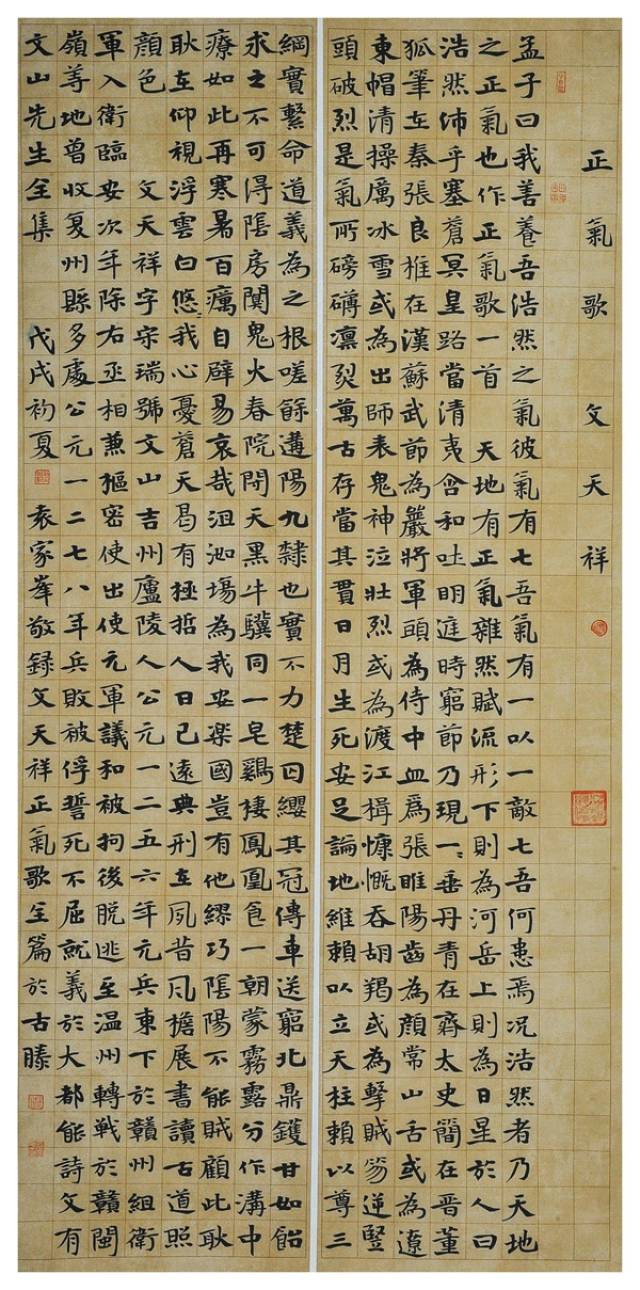 正氣歌 文天祥
孟子曰我善養吾浩然之氣彼氣有七吾氣有一以一敵七吾何患焉況浩然者乃天地
之正氣也作正氣歌一首 天地有正氣雜然賦流形下則為河岳上則為日星於人曰
浩然沛乎塞蒼冥皇路當清夷含和吐明庭時窮節乃現一〻垂丹青在齊太史簡在晉董
狐筆在秦張良椎在漢蘇武節為嚴將軍頭為侍中血為張睢陽齒為顏常山舌或為遼
東帽清操厲冰雪或為出師表鬼神泣壯烈或為渡江楫慷慨吞胡羯或為擊賊笏逆豎
頭破烈是氣所磅礡凜烈萬古存當其貫日月生死安足論地維賴以立天柱賴以尊三
綱實繫命道義為之根嗟餘遘陽九隸也實不力楚囚纓其冠傳車送窮北鼎鑊甘如飴
求之不可得陰房闃鬼火春院閉天黑牛驥同一皂鷄棲鳳凰食一朝蒙霧露分作溝中
療如此再寒暑百癘自辟易哀哉沮洳場為我安楽國豈有他繆巧陰陽不能賊顧此耿
耿在仰視浮雲白悠〻我心憂蒼天曷有極哲人日已遠典刑在夙昔風檐展書讀古道照
顏色 文天祥字宋瑞號文山吉州廬陵人公元一二五六年元兵東下於贛州組衛
軍入衛臨安次年除右丞相兼樞密使出使元軍議和被拘後脫逃至温州轉戰於贛閩
嶺等地曾收复州縣多處公元一二七八年兵敗被俘誓死不屈就義於大都能詩文有
文山先生全集 戊戌初夏 袁家峯敬録文天祥正氣歌全篇於古滕